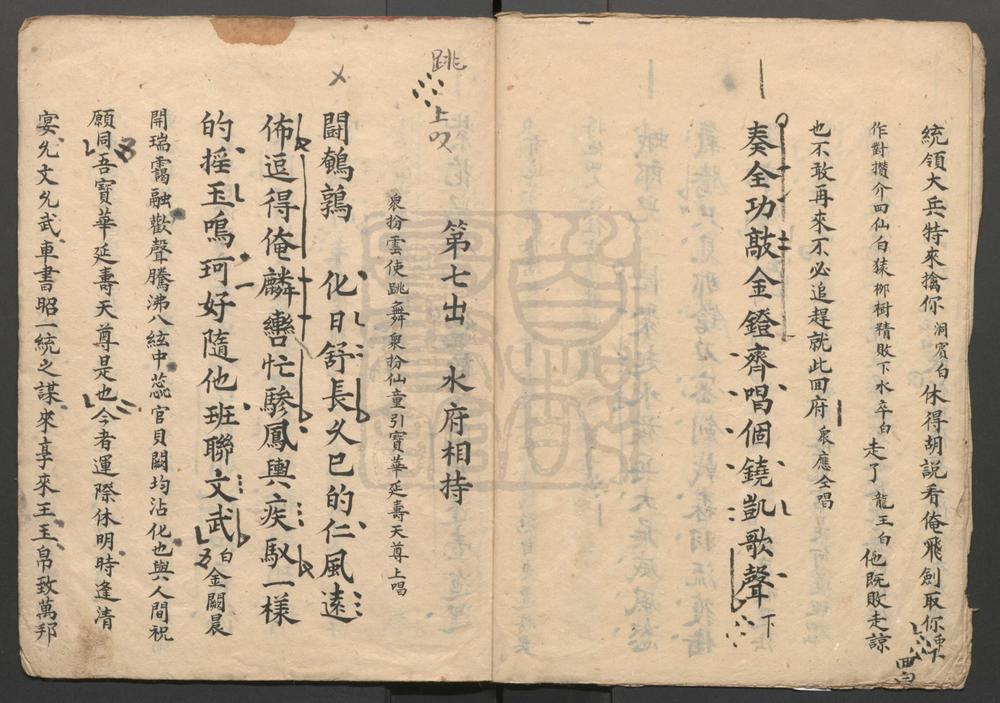 統領大兵特來擒你洞賓白休得胡説看俺飛劍取你
作對攢介四仙白猿柳樹精敗下水卒白走了龍王白他既敗走諒
也不敢再來不必追趕就此回府衆應全唱
奏全功敲金鐙齊唱個鐃凱歌聲下
第七出 水府相持
衆扮雲使跳舞衆扮仙童引寶華延壽天尊上唱
跳上叹
鬪鵪鶉 化日舒長久已的仁風遠
佈逗得俺麟轡忙驂鳳輿疾馭一樣
的搖玉鳴珂好隨他班聯文武白金闕晨
開瑞靄融歡聲騰沸八絃中蕊宮貝闕均沾化也與人間祝
願同吾寶華延壽天尊是也今者運際休明時逢清
宴允文允武車書昭一統之謀來享來王玉帛致萬邦